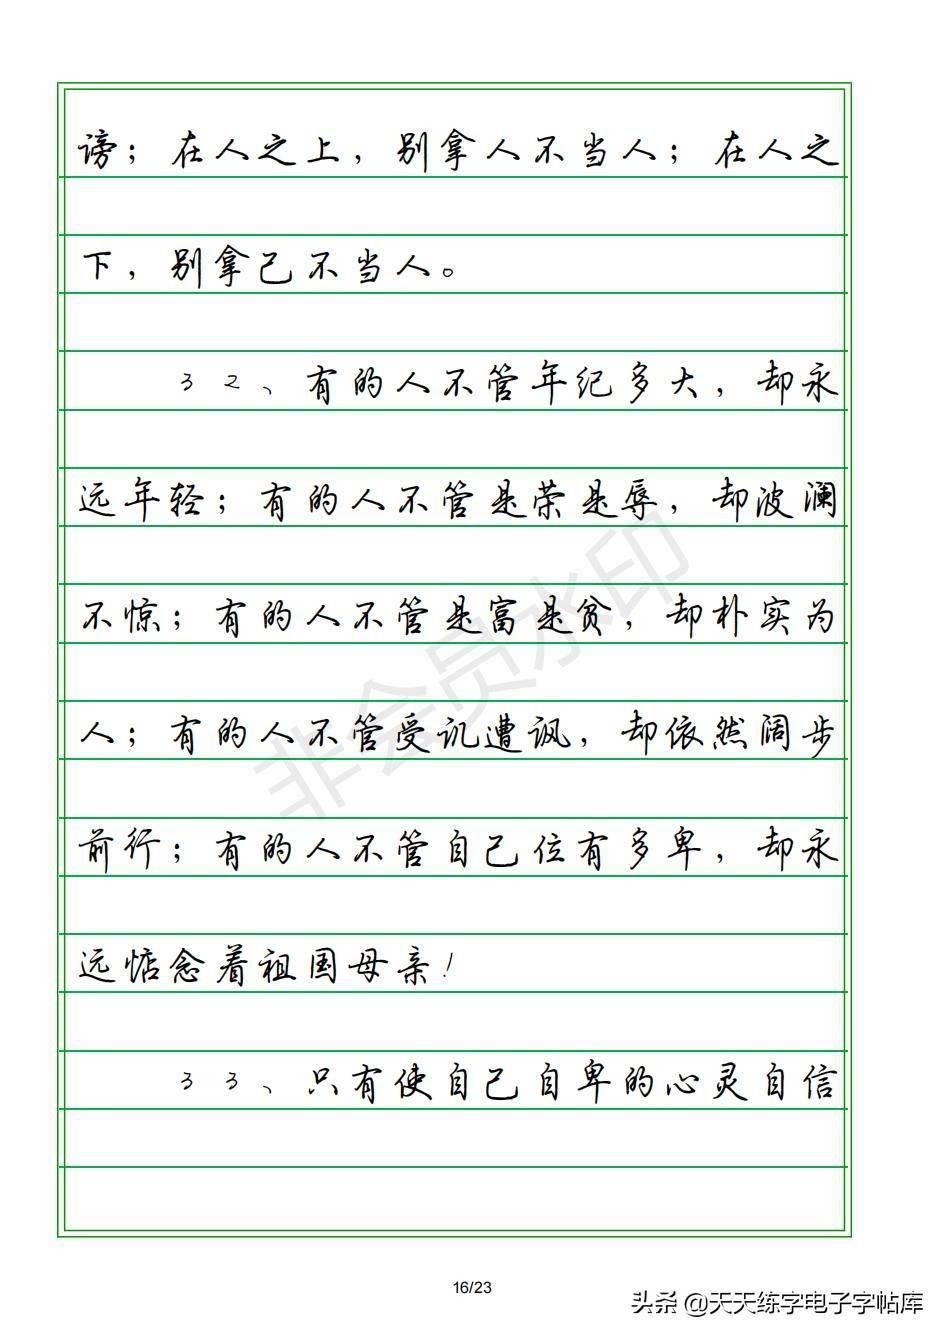 谤；在人之上，别拿人不当人；在人之
下，别拿己不当人。
32、有的人不管年纪多大，却永
远年轻；有的人不管是荣是辱，却波澜
不惊；有的人不管是富是贫，却朴实为
人；有的人不管受讥遭讽，却依然阔步
前行；有的人不管自己位有多卑，却永
远惦念着祖国母亲！
33、只有使自己自卑的心灵自信
非会员水印
16/23
头条 @天天练字电子字帖库